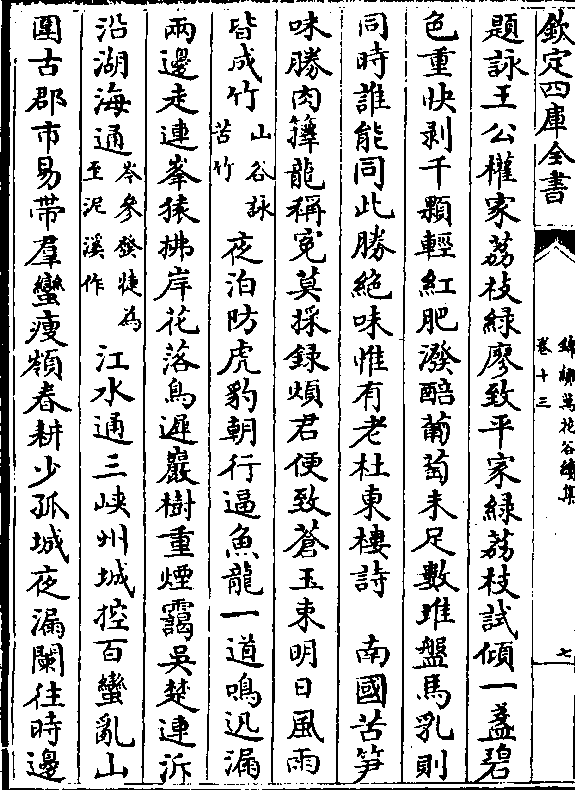 欽定四庫全書
錦繡萬花谷續集
卷十三
七
題詠王公權家荔枝緑廖致平家緑荔枝試傾一盞碧
色重快剥千顆輕紅肥潑醅葡萄未足數堆盤馬乳則
同時誰能同此勝絶味惟有老杜東樓詩　南國苦笋
味勝肉籜龍稱寃莫採録煩君便致蒼玉束明日風雨
皆成竹山谷詠苦竹　夜泊防虎豹朝行逼魚龍一道鳴迅漏
兩邊走連峯猿拂岸花落鳥遲巖樹重煙靄吳楚連泝
沿湖海通岑參發犍為至泥溪作　江水通三峽州城控百蠻亂山
圍古郡市易帶羣蠻瘦嶺春耕少孤城夜漏闌往時邊